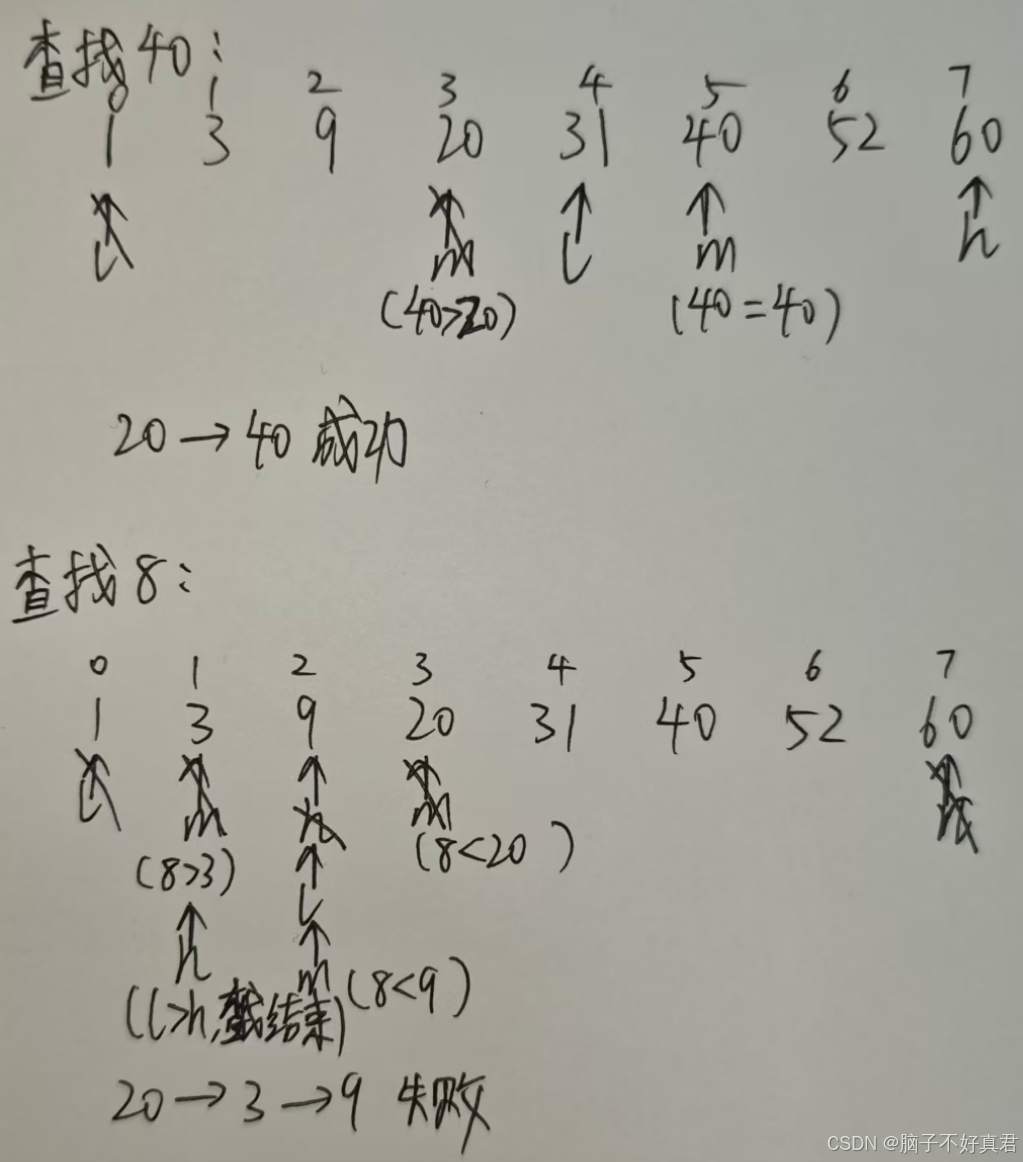 查找40:
0 1 2 3 4 5 6 7
1 3 9 20 31 40 52 60
l m l m h
(40>20) (40=40)
20→40 成功
查找8:
0 1 2 3 4 5 6 7
1 3 9 20 31 40 52 60
l m h m h
(8>3) (8<20)
l
h m (8<9)
(l>h,查找结束)
20→3→9 失败
CSDN @脑子不好真君